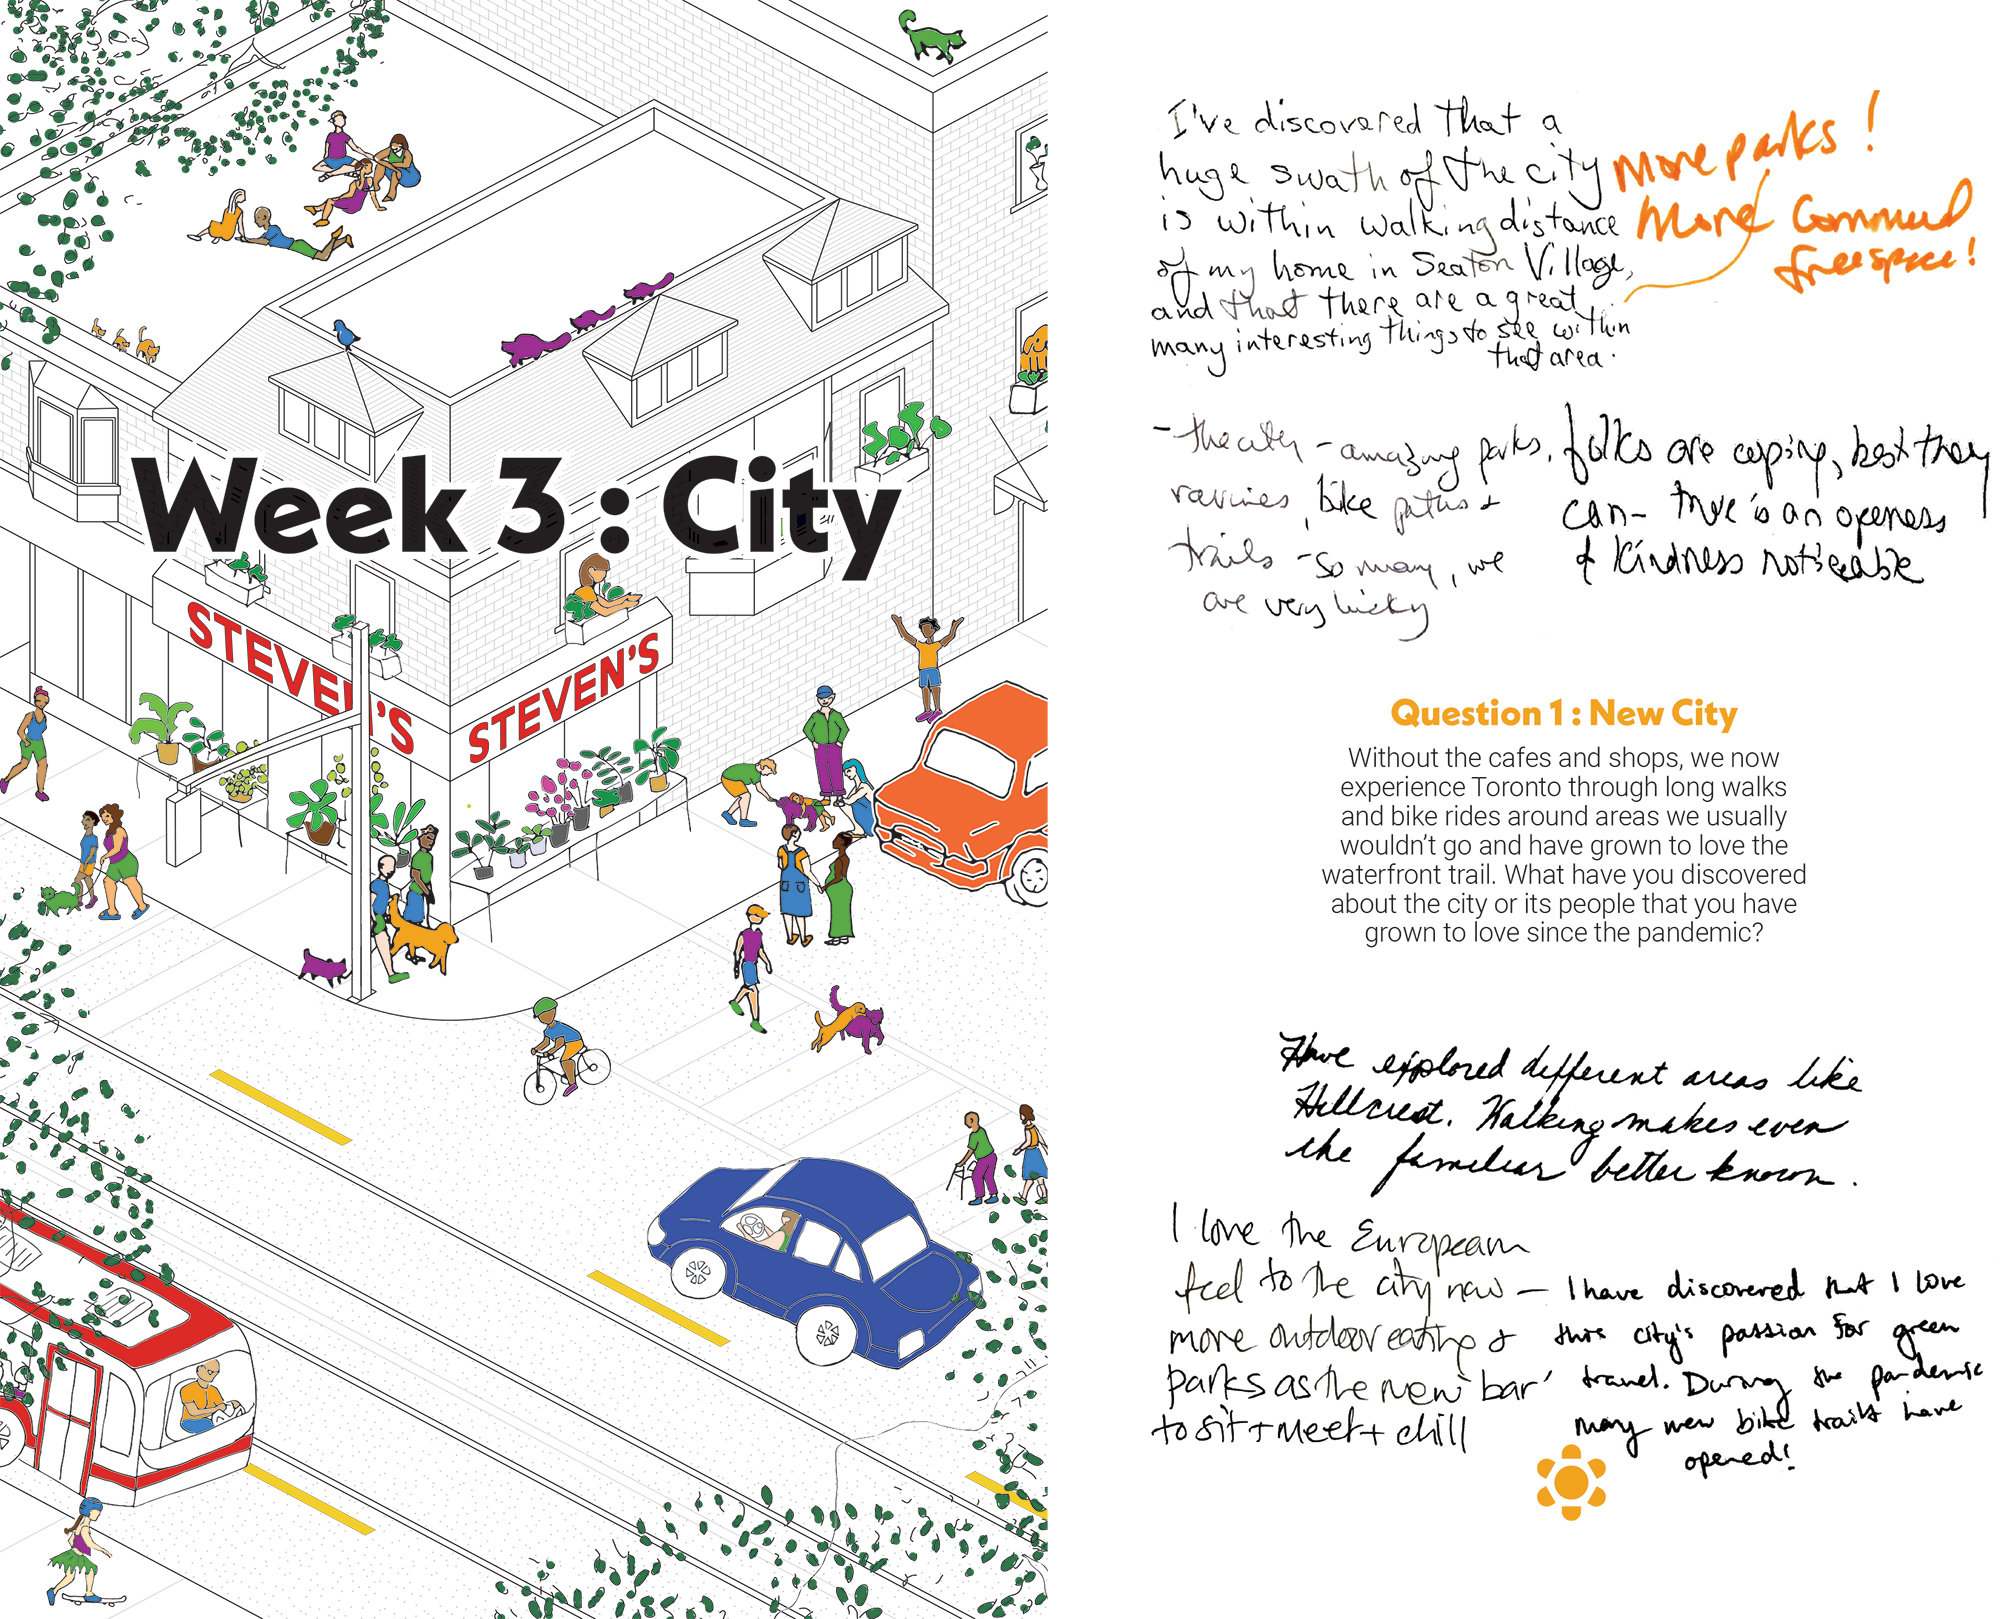 Week 3 : City
STEVEN'S
STEVEN'S
I've discovered that a
huge swath of the city
is within walking distance
of my home in Seaton Village,
and that there are a great
many interesting things to see within
that area.
More parks!
More Communal
free space!
- the city - amazing parks,
ravines, bike paths +
trails - so many, we
are very lucky
folks are coping, best they
can - there is an openess
& kindness noticeable
Question 1 : New City
Without the cafes and shops, we now
experience Toronto through long walks
and bike rides around areas we usually
wouldn't go and have grown to love the
waterfront trail. What have you discovered
about the city or its people that you have
grown to love since the pandemic?
Have explored different areas like
Hillcrest. Walking makes even
the familiar better known.
I love the European
feel to the city now –
more outdoor eating +
parks as the new 'bar'
to sit + meet + chill
I have discovered that I love
this city's passion for green
travel. During the pandemic
many new bike trails have
opened!